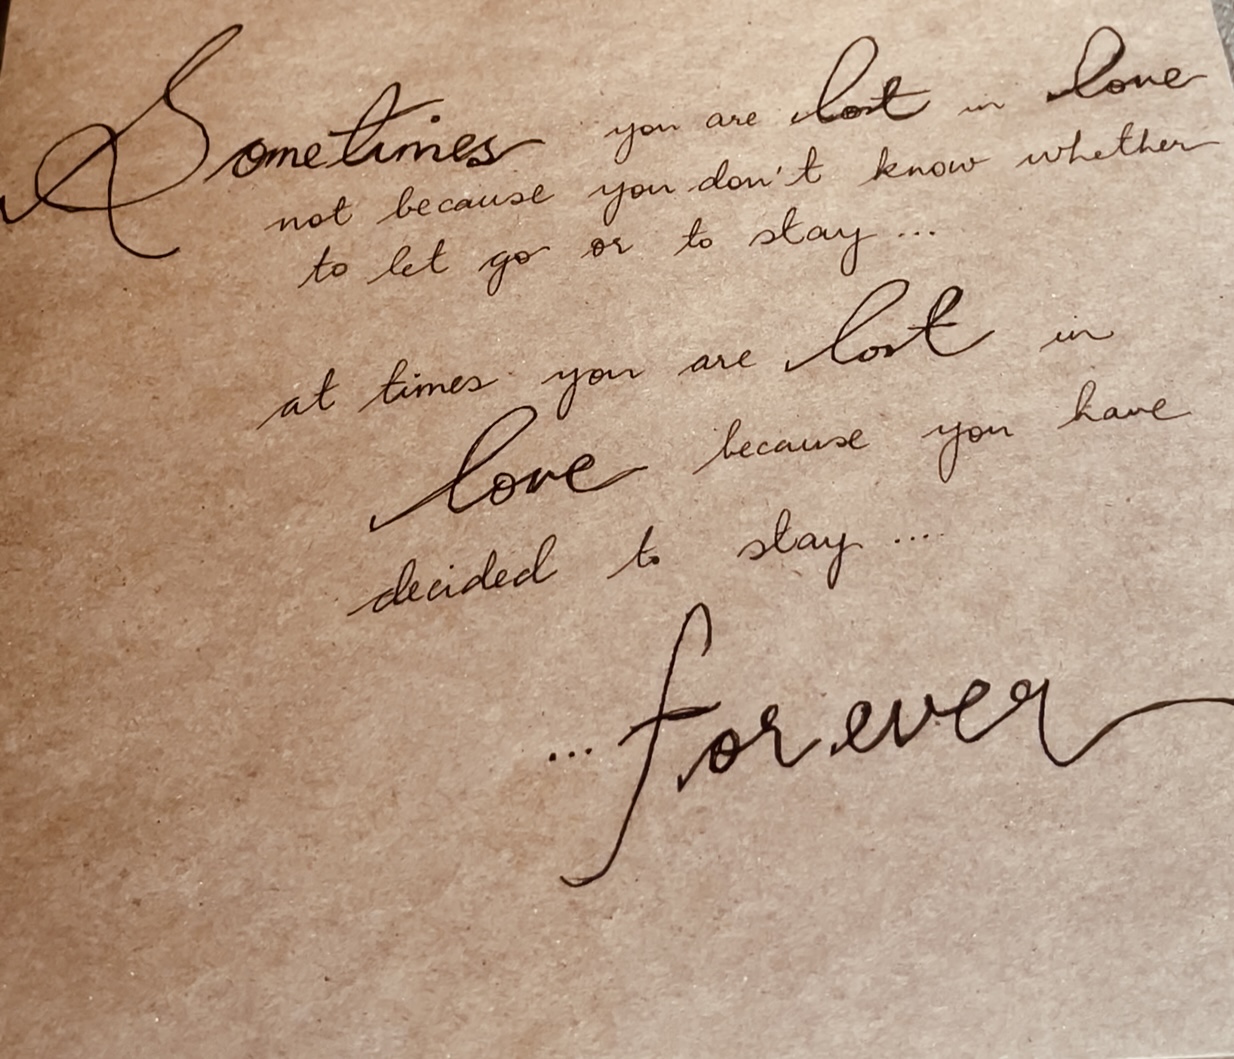 Sometimes you are lost in love
not because you don't know whether
to let go or to stay...
at times you are lost in
love because you have
decided to stay....
...forever